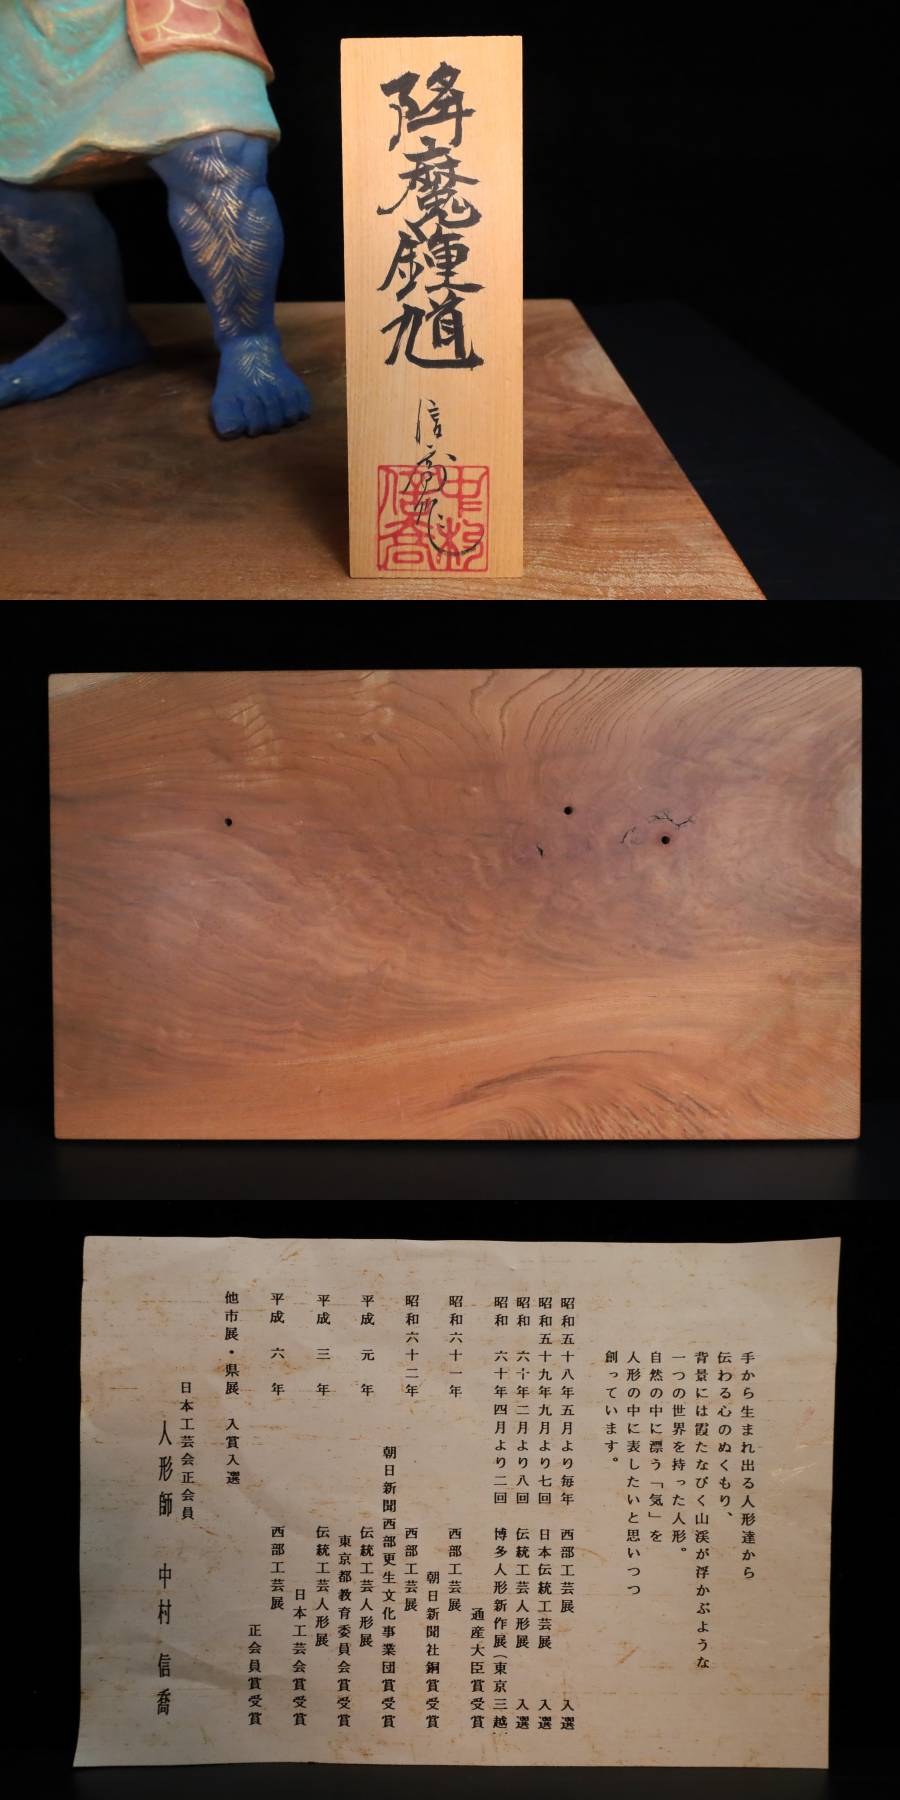 降魔鍾馗
信喬作
中村
信喬
手から生まれ出る人形達から
伝わる心のぬくもり、
背景には霞たなびく山渓が浮かぶような
一つの世界を持った人形。
自然の中に漂う「気」を
人形の中に表したいと思いつつ
創っています。
昭和五十八年五月より毎年 西部工芸展 入選
昭和五十九年九月より七回 日本伝統工芸展 入選
昭和 六十年二月より八回 伝統工芸人形展 入選
昭和 六十年四月より二回 博多人形新作展(東京三越
通産大臣賞受賞
昭和六十一年 西部工芸展
朝日新聞社銅賞受賞
昭和六十二年 西部工芸展
朝日新聞西部更生文化事業団賞受賞
平成 元 年 伝統工芸人形展
東京都教育委員会賞受賞
平成 三 年 伝統工芸人形展
日本工芸会賞受賞
平成 六 年 西部工芸展
正会員賞受賞
他市展・県展 入賞入選
日本工芸会正会員
人形師 中村 信喬